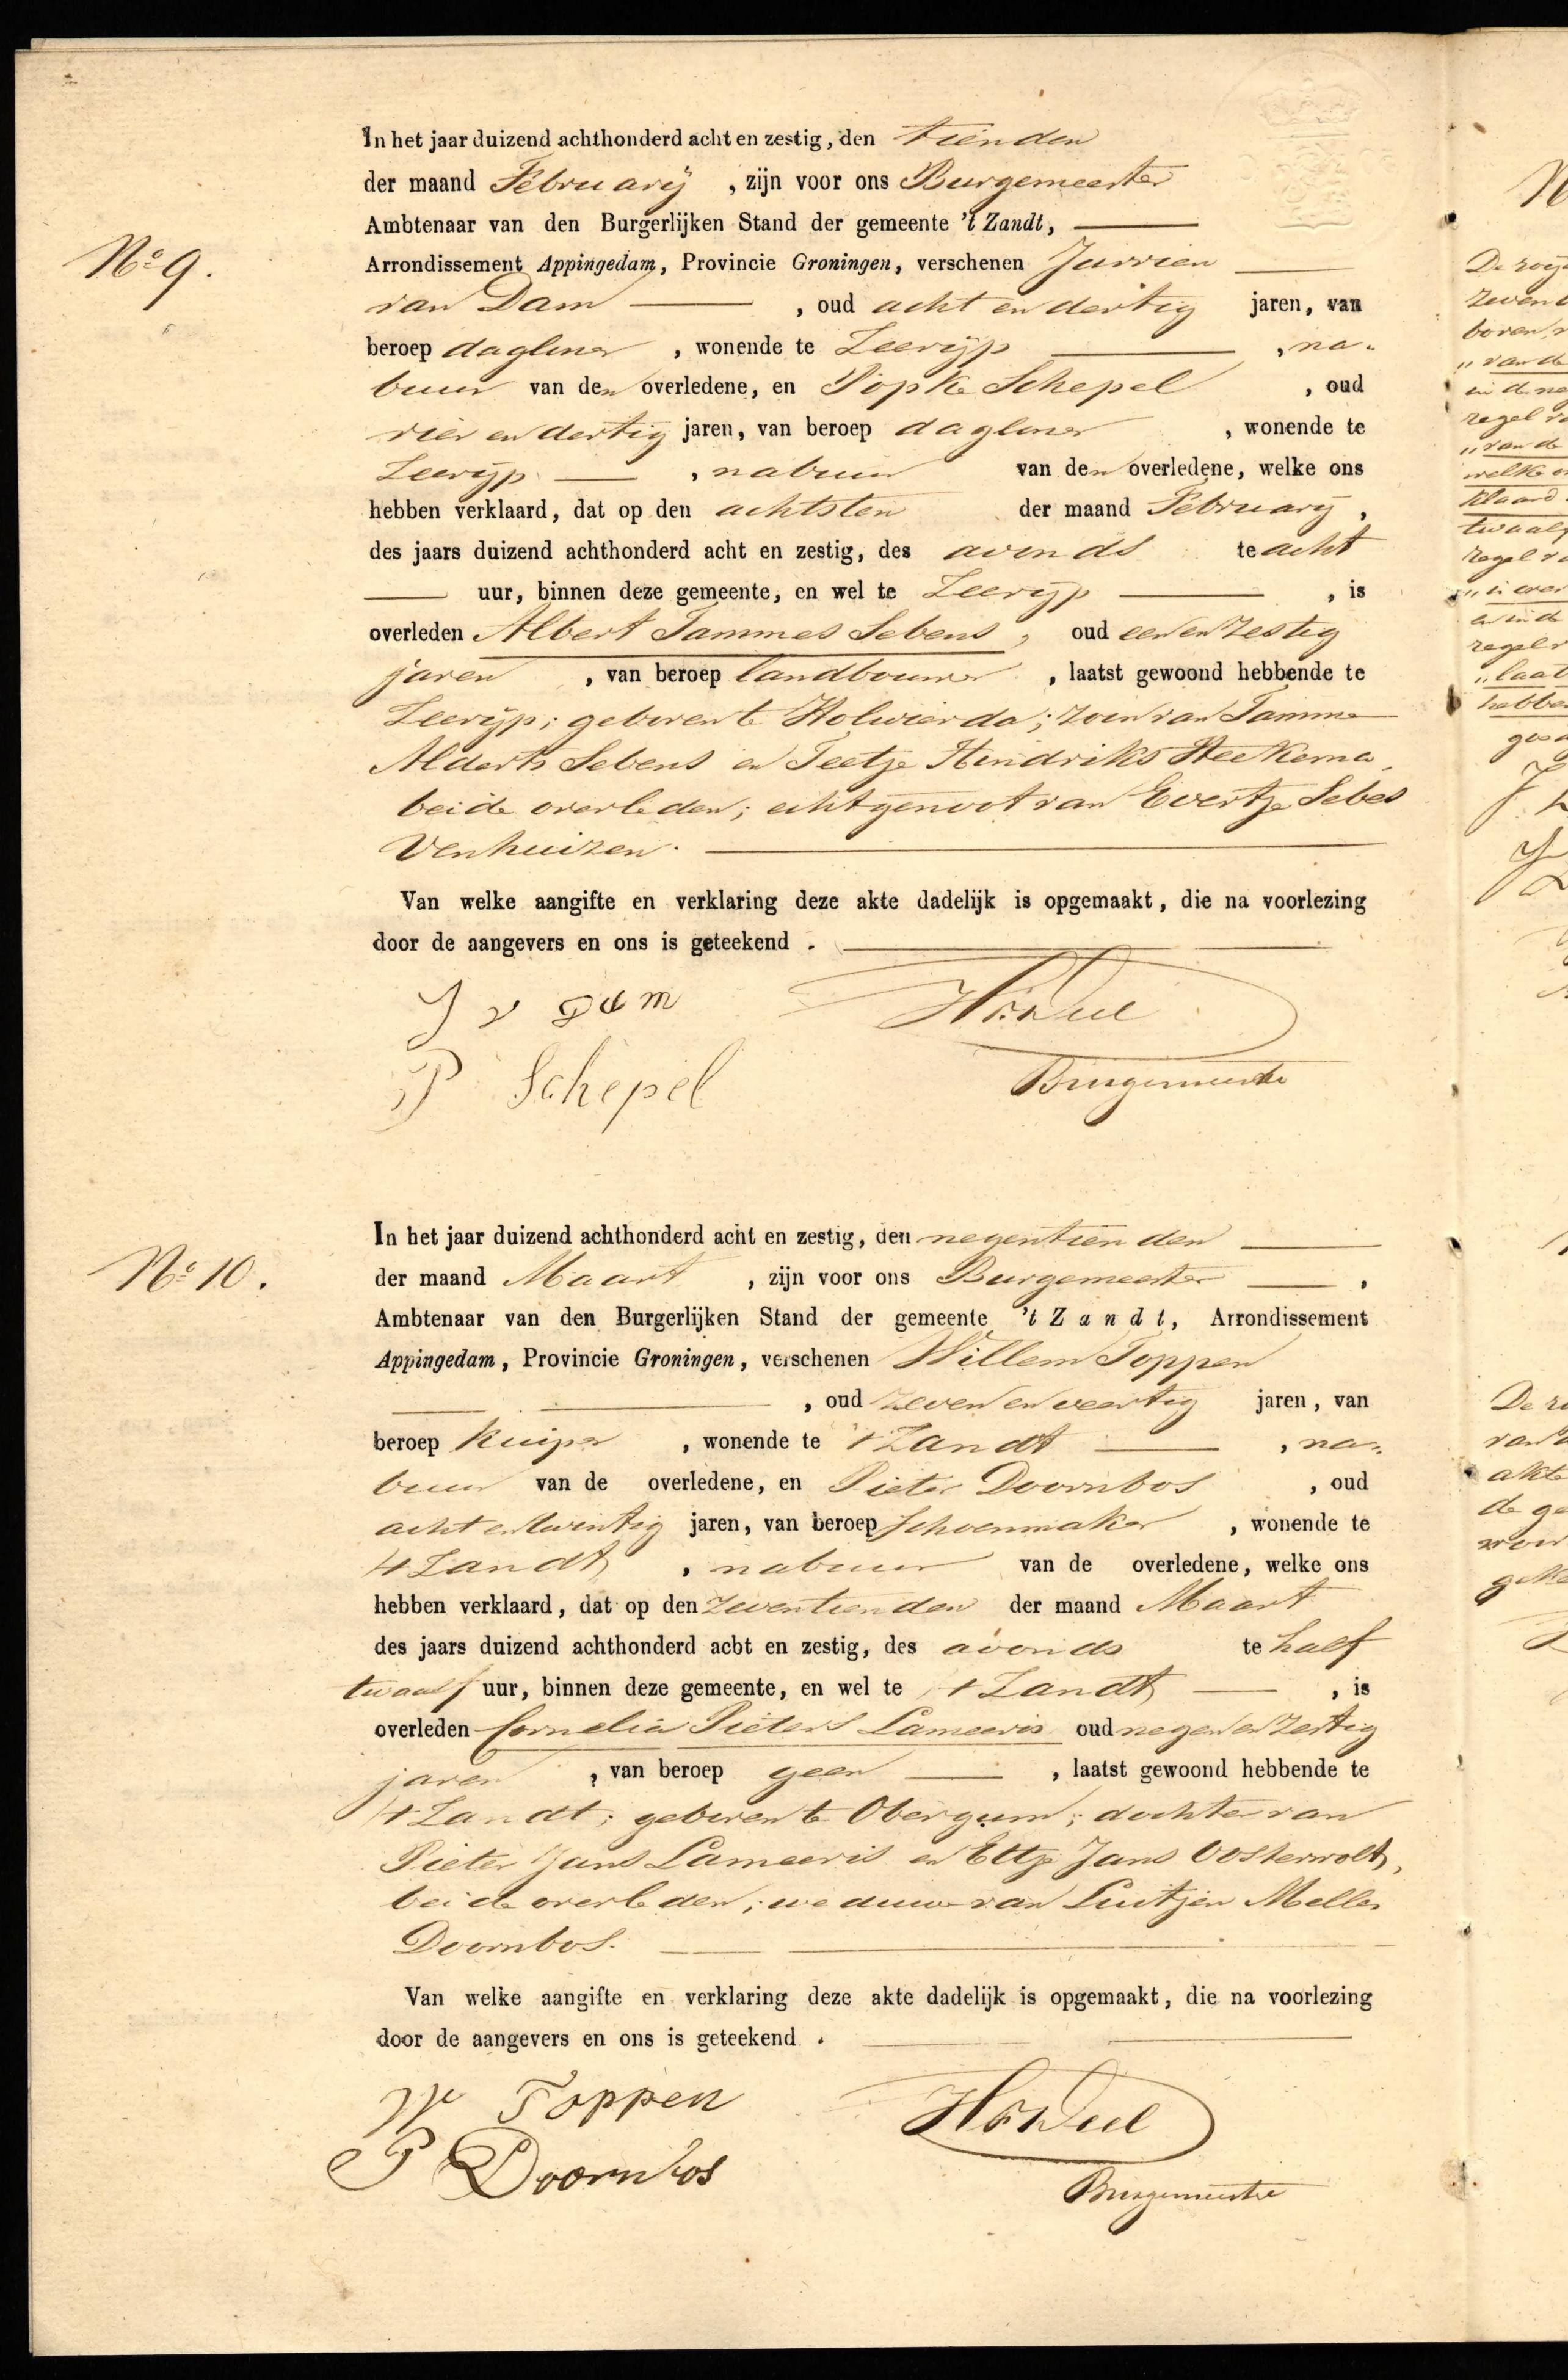 In het jaar duizend achthonderd acht en zestig, den tienden
der maand February , zijn voor ons Burgemeester
Ambtenaar van den Burgerlijken Stand der gemeente 't Zandt,
No 9.
Arrondissement Appingedam, Provincie Groningen, verschenen Jurrien
van Dam , oud acht en dertig jaren, van
beroep dagloner , wonende te Zeerijp , na-
buur van den overledene, en Popke Schepel , oud
vier en dertig jaren, van beroep dagloner , wonende te
Zeerijp , nabuur van den overledene, welke ons
hebben verklaard, dat op den achtsten der maand February ,
des jaars duizend achthonderd acht en zestig, des avonds te acht
uur, binnen deze gemeente, en wel te Zeerijp , is
overleden Albert Tammes Sebens , oud een en zestig
jaren , van beroep landbouwer , laatst gewoond hebbende te
Zeerijp; geboren te Holwierda; zoon van Tamme
Alderts Sebens en Teetje Hendriks Heekema,
beide overleden; echtgenoot van Evertje Sebes
Venhuizen.
Van welke aangifte en verklaring deze akte dadelijk is opgemaakt, die na voorlezing
door de aangevers en ons is geteekend .
J v Dam
P Schepel
Burgemeester
In het jaar duizend achthonderd acht en zestig, den negentienden
No 10.
der maand Maart , zijn voor ons Burgemeester ,
Ambtenaar van den Burgerlijken Stand der gemeente 't Zandt, Arrondissement
Appingedam, Provincie Groningen, verschenen Willem Toppen
, oud zeven en veertig jaren, van
beroep kuiper , wonende te 't Zandt , na-
buur van de overledene, en Pieter Doornbos , oud
acht en twintig jaren, van beroep schoenmaker , wonende te
't Zandt , nabuur van de overledene, welke ons
hebben verklaard, dat op den zeventienden der maand Maart
des jaars duizend achthonderd acht en zestig, des avonds te half
twaalf uur, binnen deze gemeente, en wel te 't Zandt , is
overleden Cornelia Pieters Lameeris oud negen en zestig
jaren , van beroep geen , laatst gewoond hebbende te
't Zandt; geboren te Obergum; dochter van
Pieter Jans Lameeris en Eltje Jans Oosterwolt,
beide overleden; weduwe van Luitjen Melles
Doornbos.
Van welke aangifte en verklaring deze akte dadelijk is opgemaakt, die na voorlezing
door de aangevers en ons is geteekend .
W Toppen
P Doornbos
Burgemeester